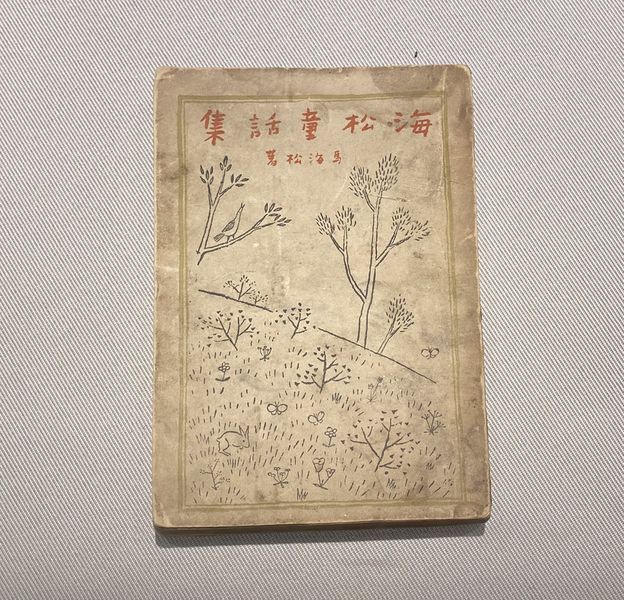 海松童話集
馬海松著